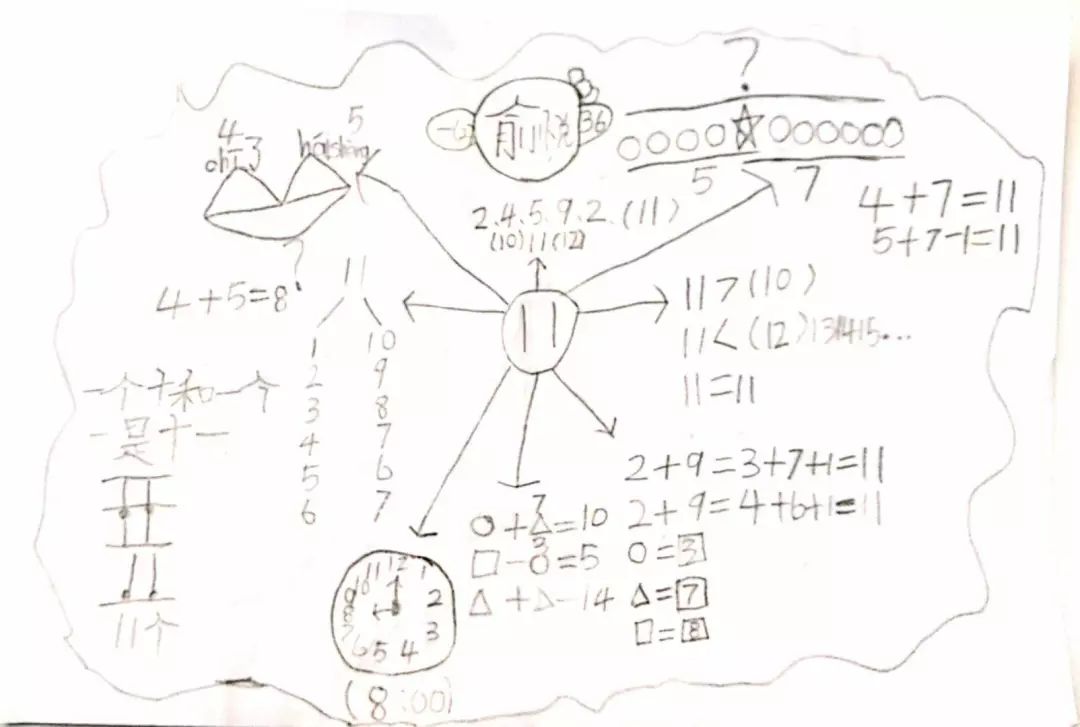 ?
俞小悦
36
4
chī
5
5 7
4+7=11
5+7-1=11
2.4.5.9.2.(11)
(10)11(12)
?
4+5=8
11
1 10
2 9
3 8
4 7
5 6
6 7
11
11>(10)
11<(12)131415...
11=11
一个十和一个
一是十一
11个
2+9=3+7+1=11
2+9=4+6+1=11
7
○+△=10
3
□-○=5
△+△-14
○=3
△=7
□=8
11 12 1
10 2
9 3
8 4
7 6 5
(8:00)